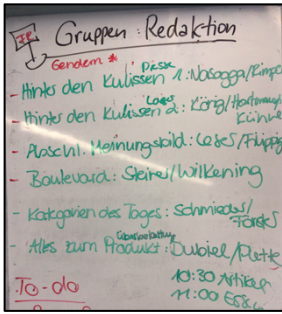 Gruppen: Redaktion
Gendern *
Desk
- Hinter den Kulissen 1: Nasagga/Rimpe
- Hinter den Kulissen 2: König/Hartmann/
- Abschl. Meinungsbild: Leßes/Filippi
- Boulevard: Steires/Wilkening
- Kategorien des Tages: Schmieder/
Förster
- Alles zum Produkt: Dubiel/Plette
10:30 Artikel
11:00 Essen
To-do